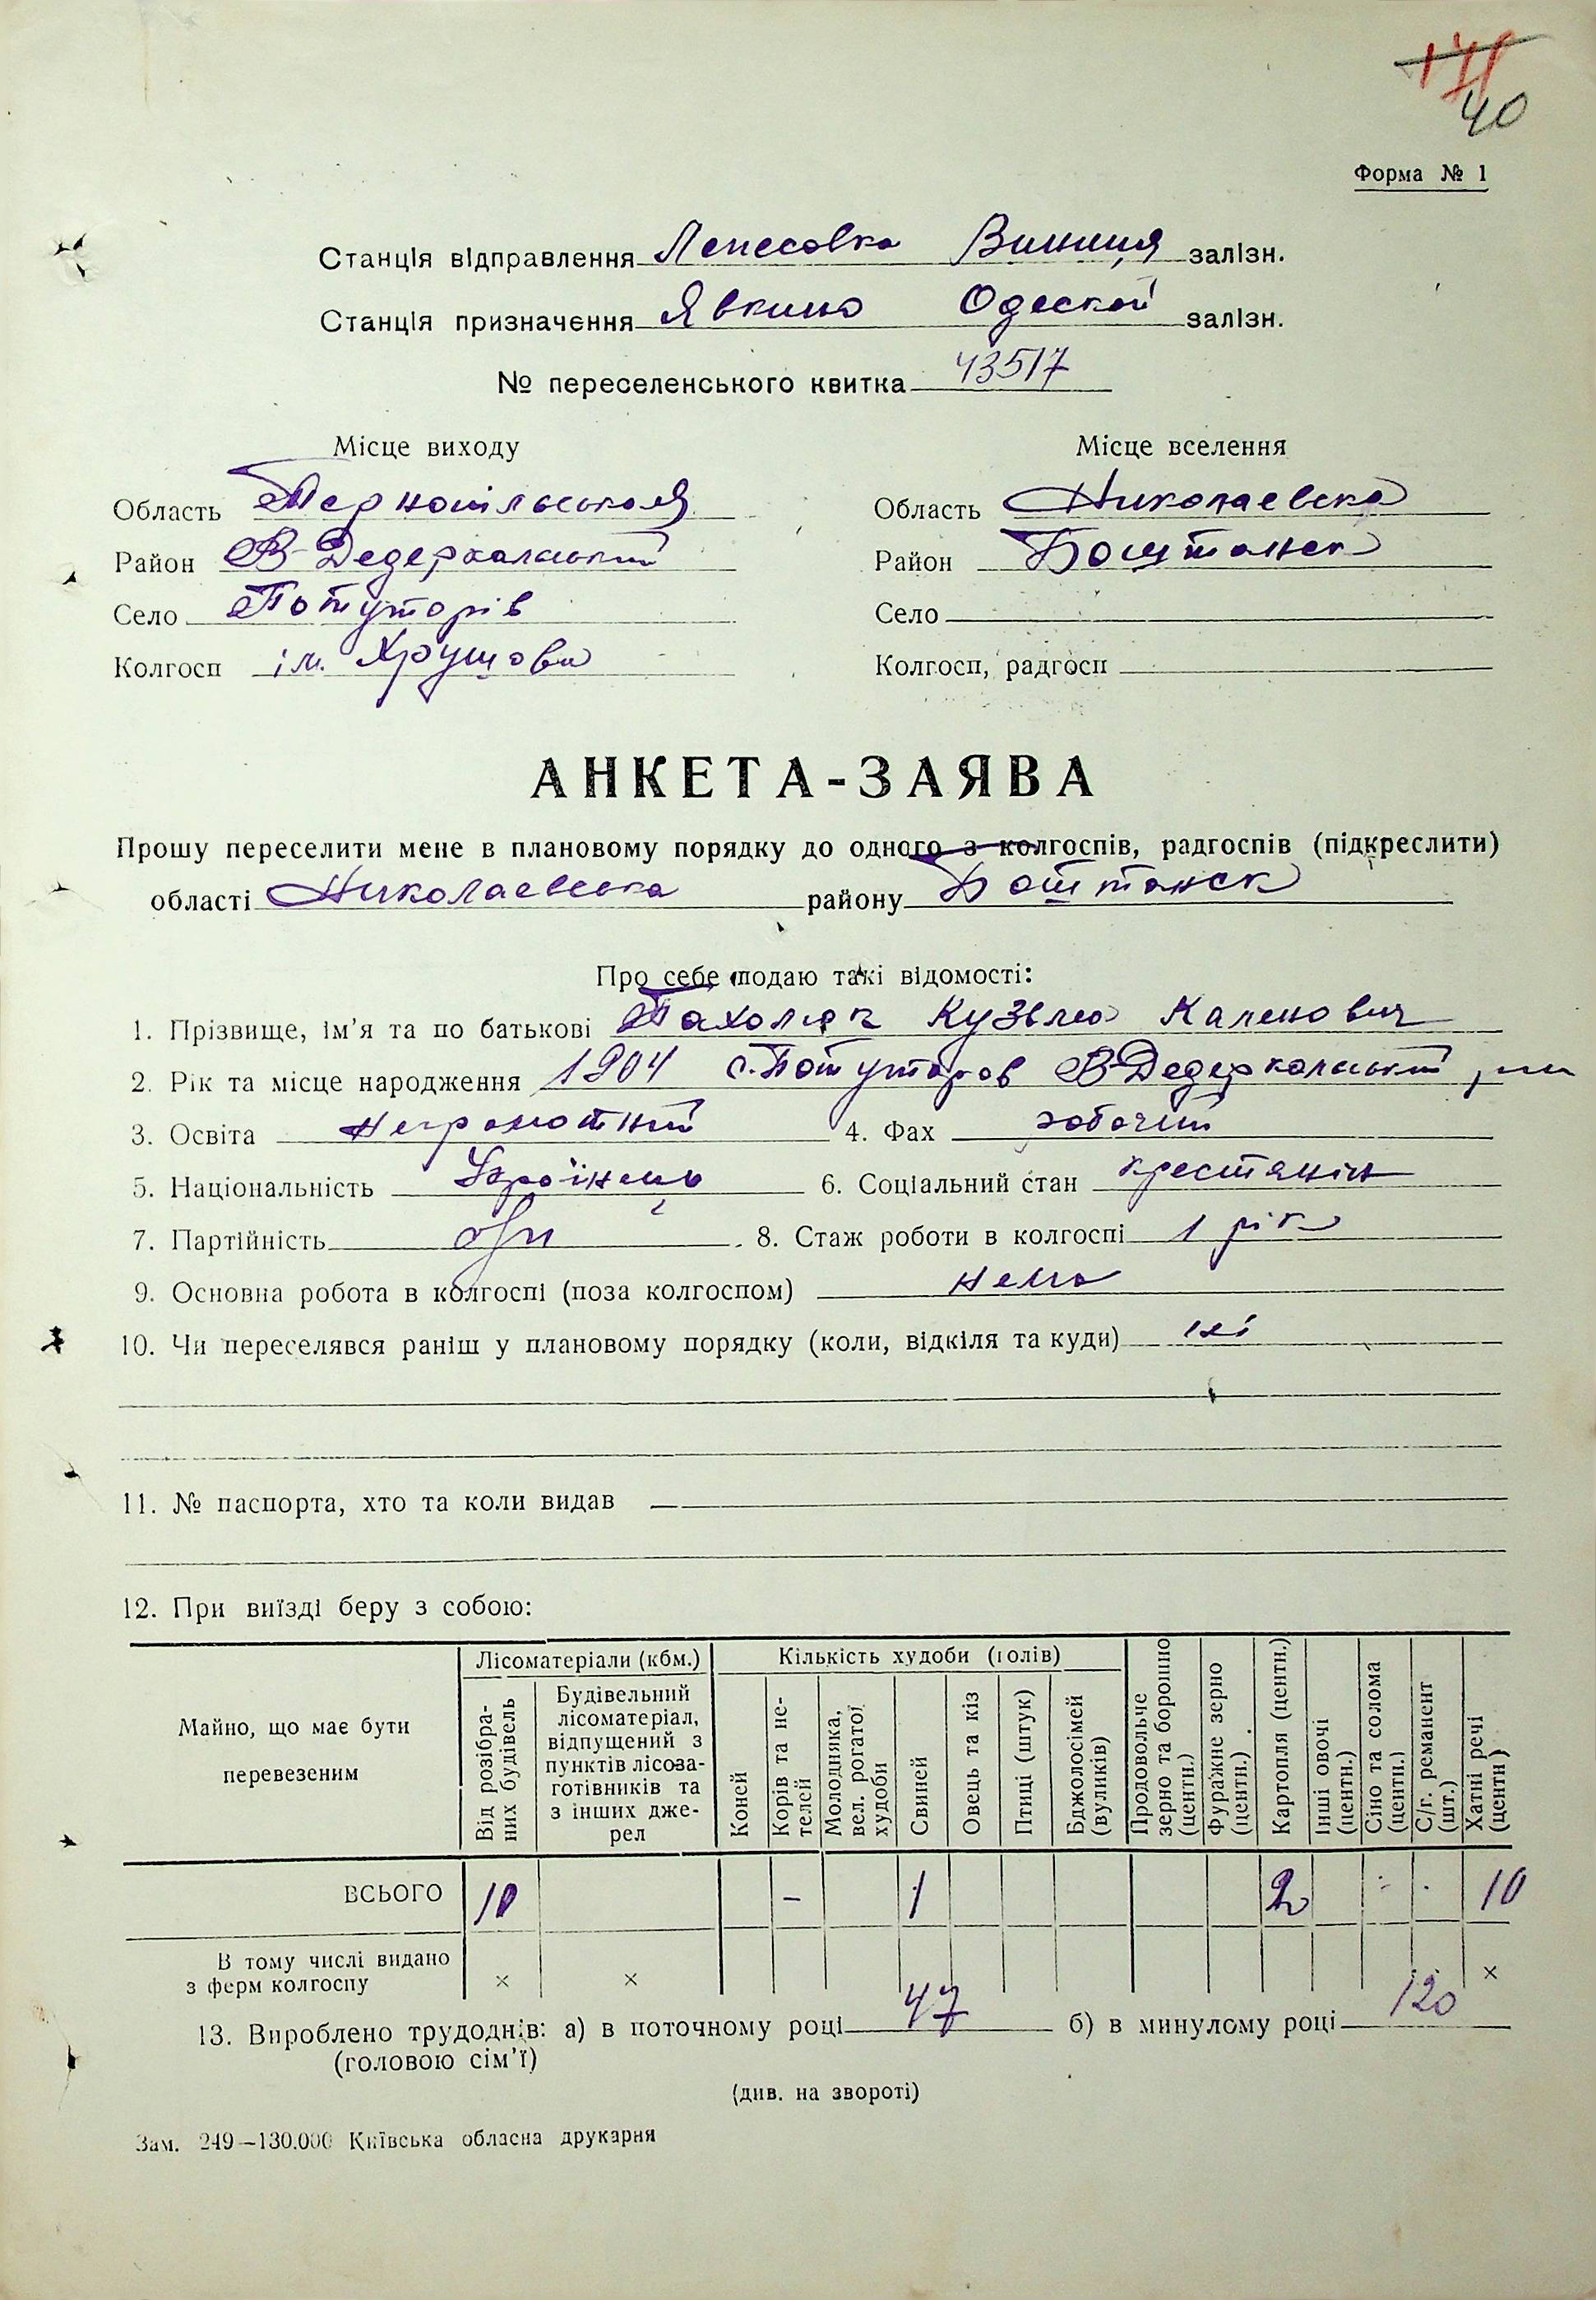 171
40
Форма № 1
Станція відправлення Лепесовка Вінниця залізн.
Станція призначення Явкино Одеской залізн.
№ переселенського квитка 43517
Місце виходу Місце вселення
Область Тернопільська Область Николаевска
Район В-Дедеркальський Район Боштанск
Село Потуторів Село
Колгосп ім. Хрущова Колгосп, радгосп
АНКЕТА-ЗАЯВА
Прошу переселити мене в плановому порядку до одного з колгоспів, радгоспів (підкреслити)
області Николаевська району Боштанск
Про себе подаю такі відомості:
1. Прізвище, ім'я та по батькові Пахолюк Кузьма Каленович
2. Рік та місце народження 1904 с. Потуторов В-Дедеркальський
3. Освіта неграмотний 4. Фах робочий
5. Національність Українець 6. Соціальний стан крестянін
7. Партійність б/п 8. Стаж роботи в колгоспі 1 рік
9. Основна робота в колгоспі (поза колгоспом) нема
10. Чи переселявся раніш у плановому порядку (коли, відкіля та куди) ні
11. № паспорта, хто та коли видав
12. При виїзді беру з собою:
Майно, що має бути перевезеним
Лісоматеріали (кбм.) Кількість худоби (голів)
Від розібраних будівель
Будівельний лісоматеріал, відпущений з пунктів лісозаготівників та з інших джерел
Коней
Корів та нетелей
Молодняка, вел. рогатої худоби
Свиней
Овець та кіз
Птиці (штук)
Бджолосімей (вуликів)
Продовольче зерно та борошно (центн.)
Фуражне зерно (центн.)
Картопля (центн.)
Інші овочі (центн.)
Сіно та солома (центн.)
С/г. реманент (шт.)
Хатні речі (центн)
ВСЬОГО 10 – 1 2 10
В тому числі видано з ферм колгоспу × × ×
13. Вироблено трудоднів: а) в поточному році 47 б) в минулому році 120
(головою сім'ї)
(див. на звороті)
Зам. 249—130.000 Київська обласна друкарня